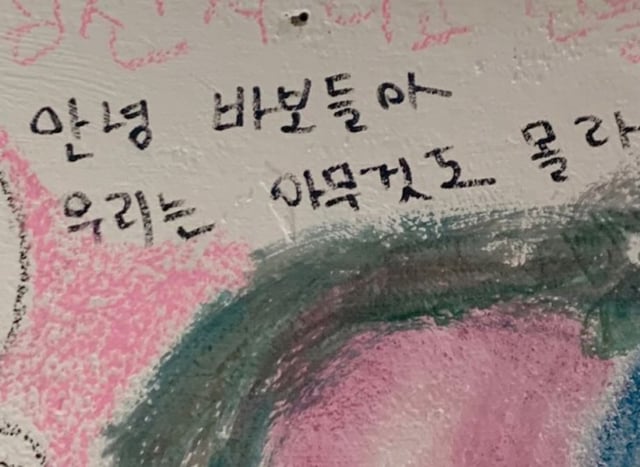 안녕 바보들아
우리는 아무것도 몰라